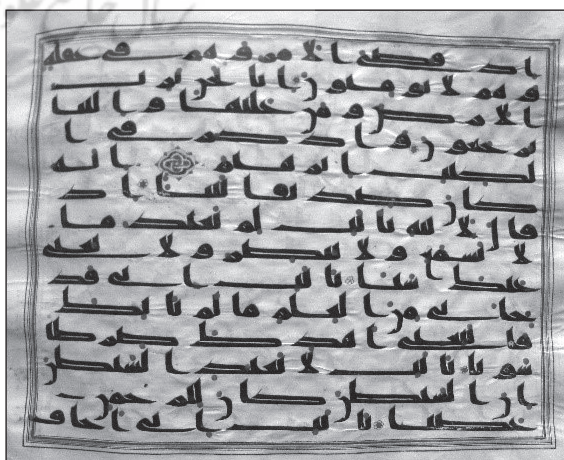 اذ قضى الامر و هم فى غفله
و هم لا يومنون انا نحن نرث
الارض و من عليها و الينا
يرجعون و اذكر فى ا
لكتب ابرهيم انه
كان صديقا نبيا اذ
قال لابيه يابت لم تعبد ما
لا يسمع و لا يبصر و لا يغنى
عنك شيا يابت انى قد
جانى من العلم ما لم ياتك
فاتبعنى اهدك صرطا
سويا يابت لا تعبد الشيطن
ان الشيطن كان للرحمن
عصيا يابت انى اخاف